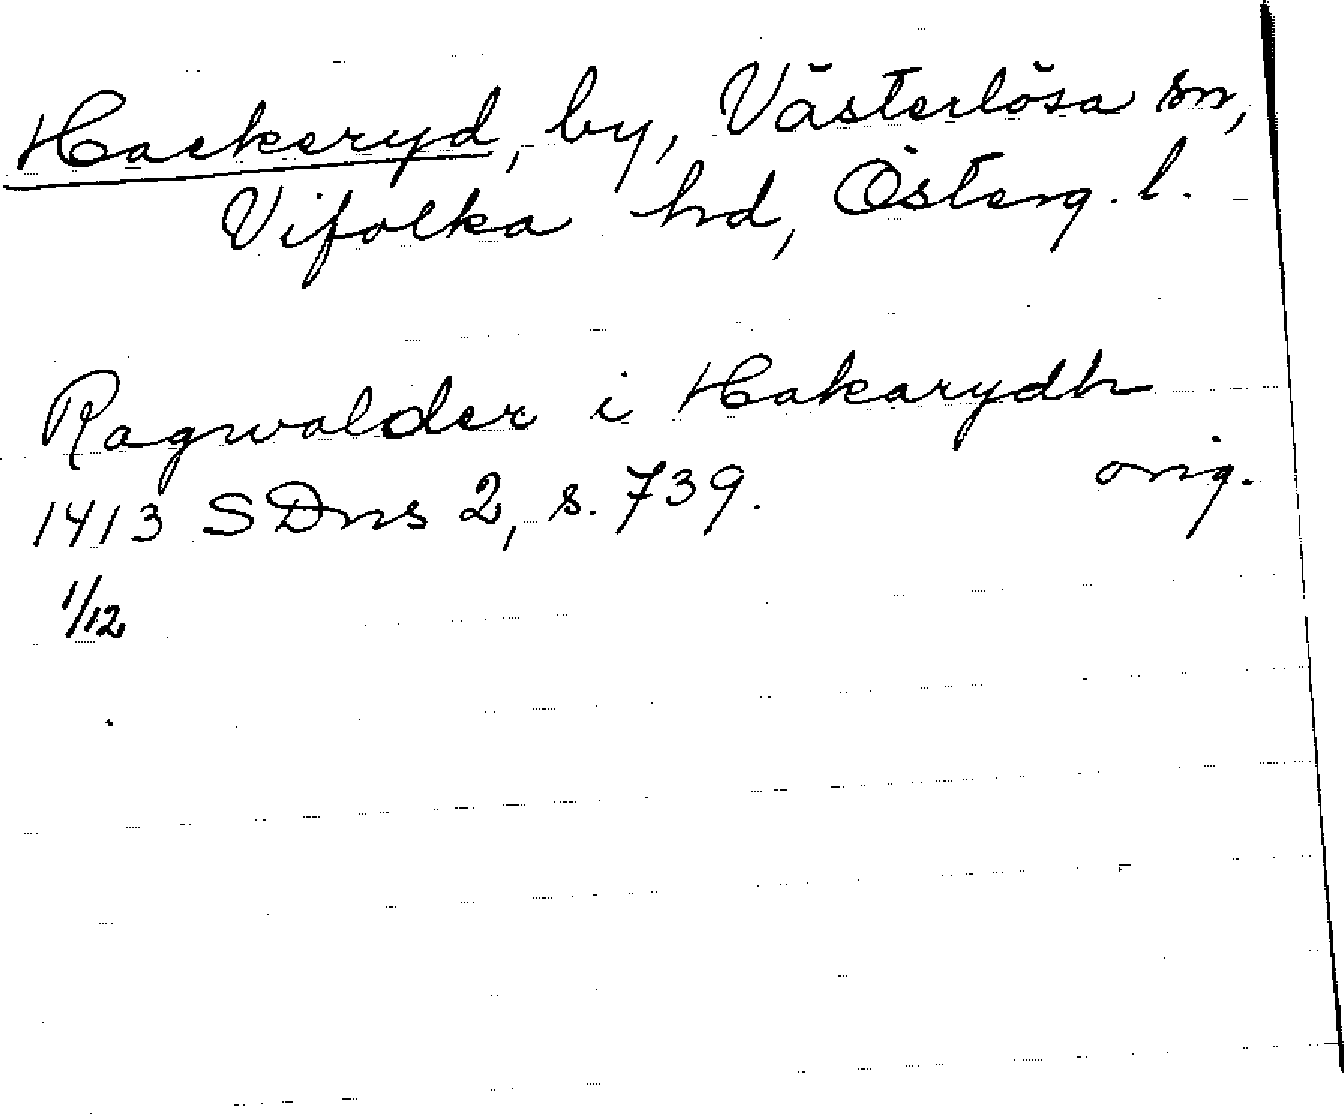 Hackeryd, by, Västerlösa sn,
Vifolka hd, Österg. l.
Ragwalder i Hakarydh
1413 SDns 2, s. 739. orig.
1/12